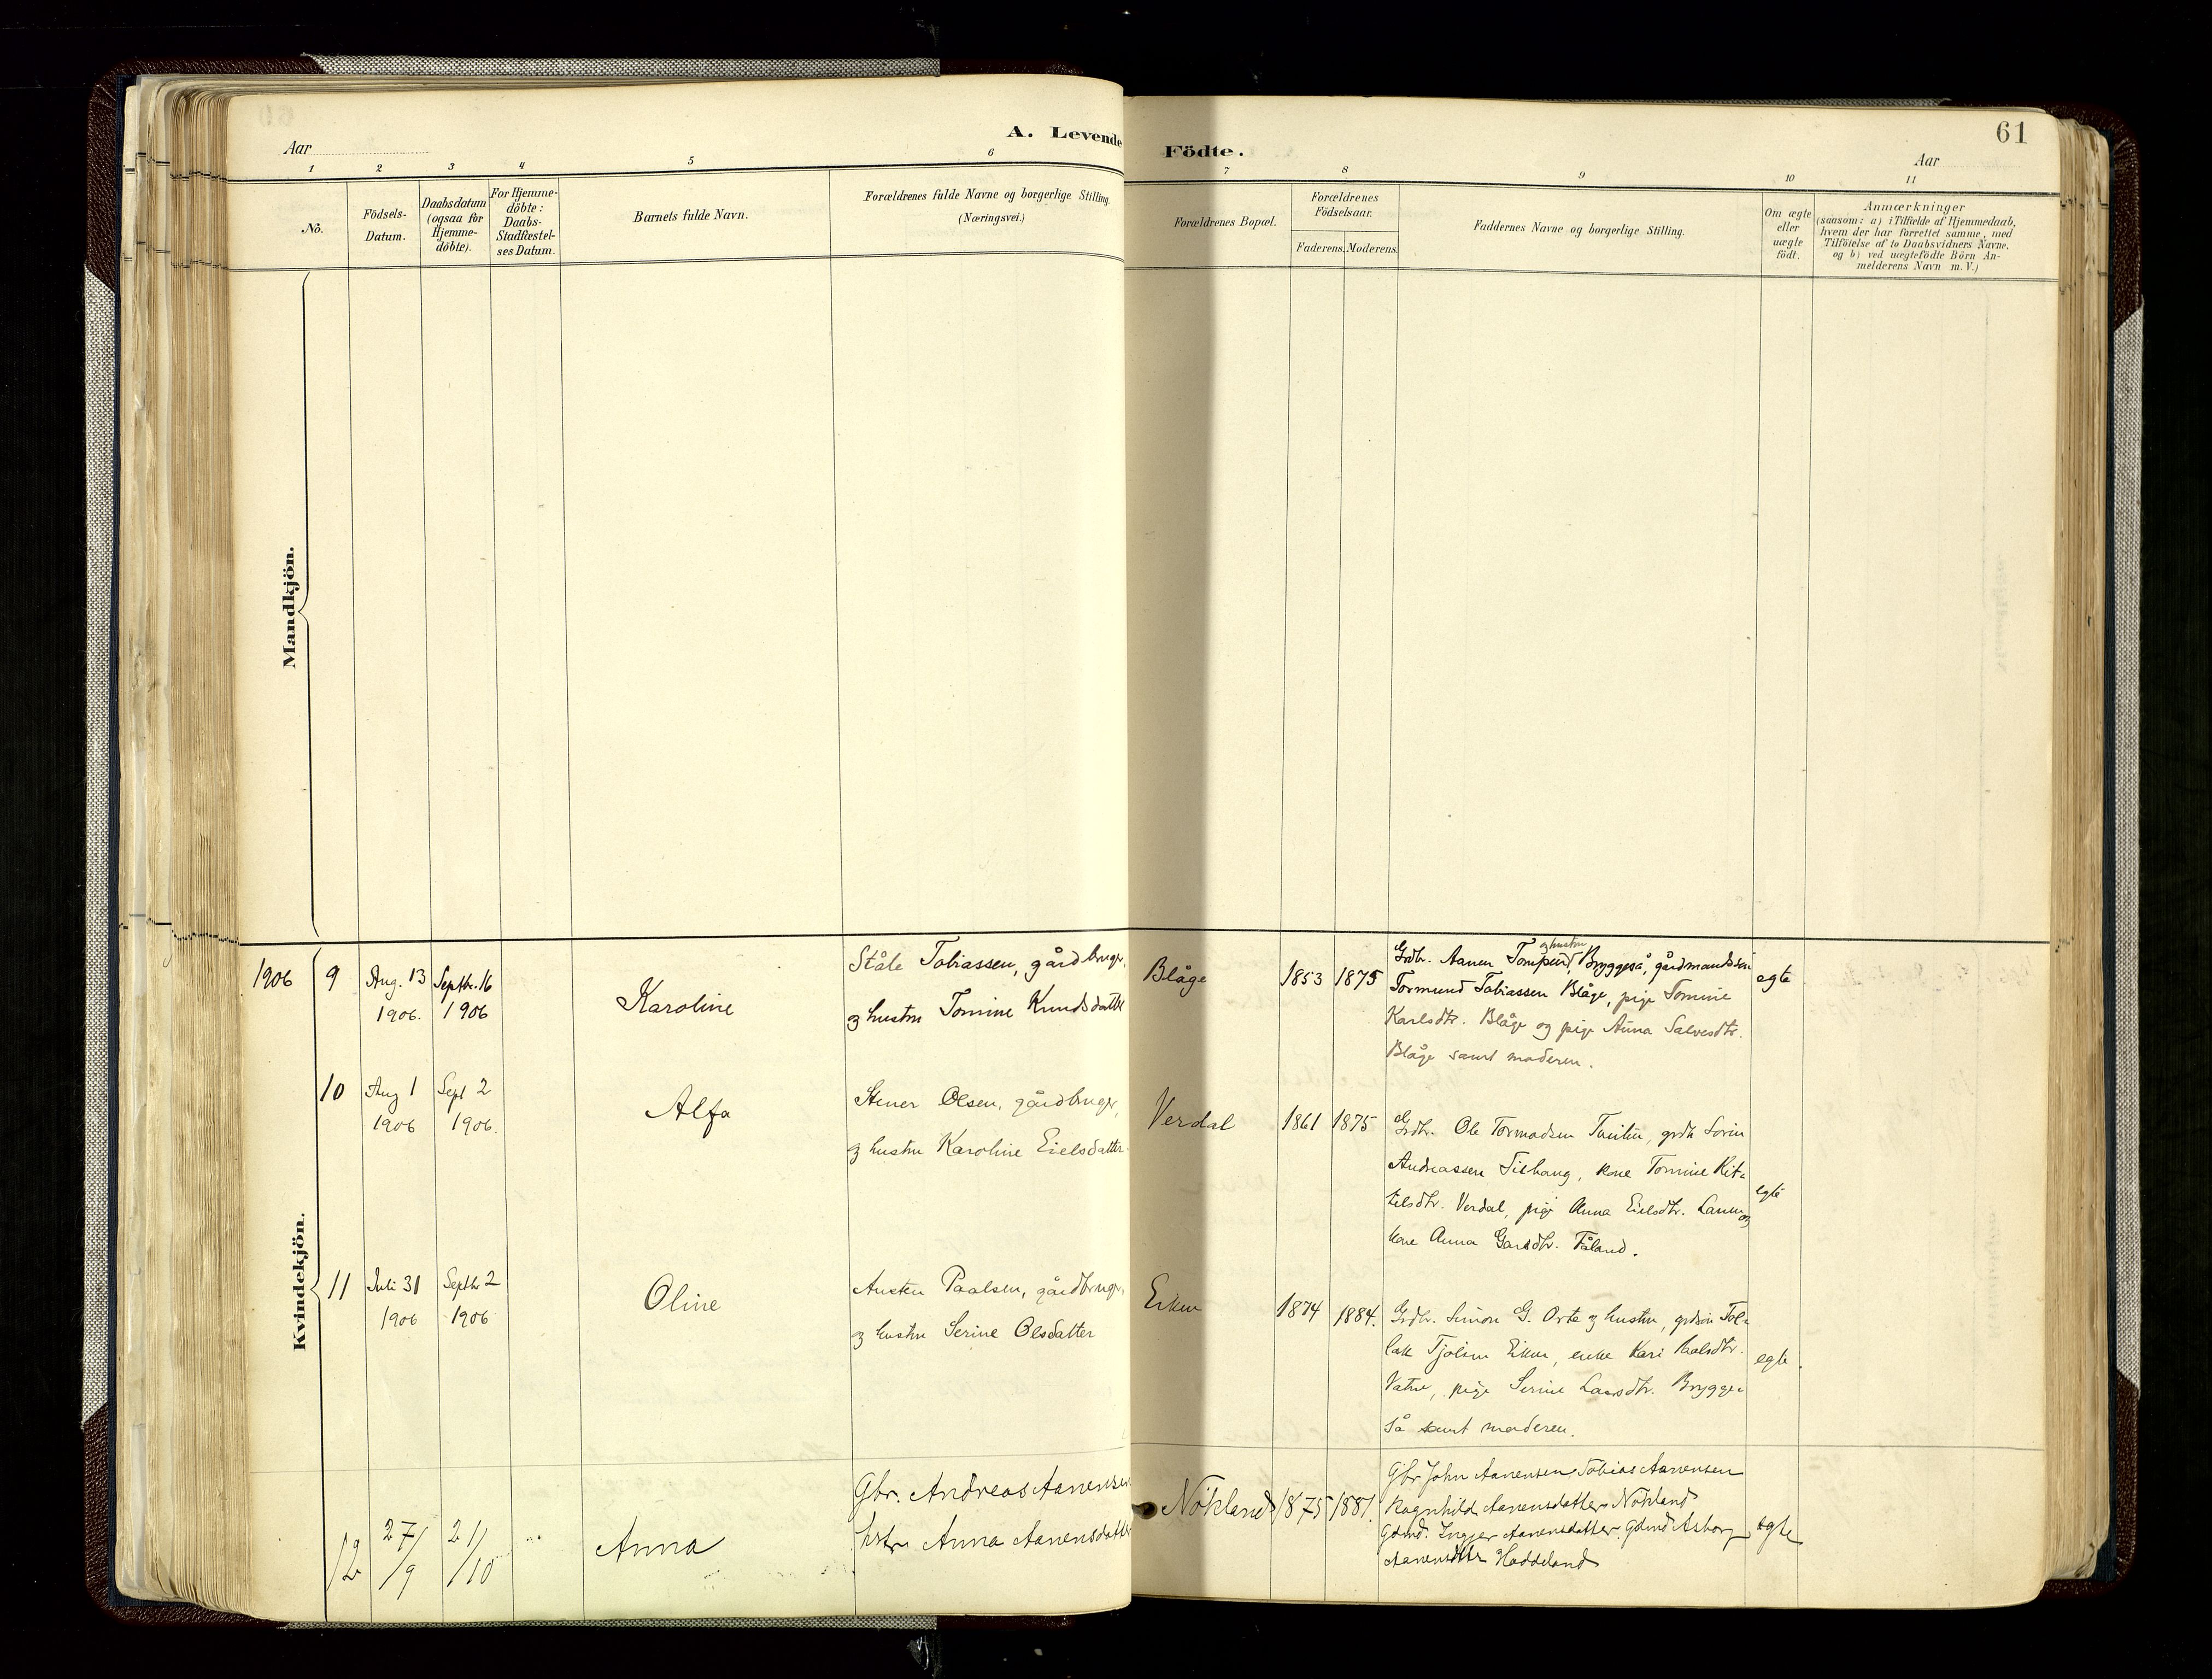 61
A. Levende Födte.
Aar
Aar
1 2 3 4 5 6 7 8 9 10 11
No.
Födsels-
Datum.
Daabsdatum
(ogsaa for
Hjemme-
döbte).
For Hjemme-
döbte:
Daabs-
Stadfæstel-
ses Datum.
Barnets fulde Navn.
Forældrenes fulde Navne og borgerlige Stilling.
(Næringsvei.)
Forældrenes Bopæl.
Forældrenes
Födselsaar.
Faderens. Moderens.
Faddernes Navne og borgerlige Stilling.
Om ægte
eller
uægte
födt.
Anmærkninger
(saasom: a) i Tilfælde af Hjemmedaab,
hvem der har forrettet samme, med
Tilföielse af to Daabsvidners Navne.
og b) ved uægtefödte Börn An-
melderens Navn m. V.)
Mandkjön.
Kvindekjön.
1906
9
Aug. 13
1906.
Septbr. 16
1906
Karoline
Ståle Tobiassen, gårdbruger,
og hustru Tomine Knudsdatter
Blåge
1853
1875
Grdbr. Aanen Bryggeså, gårdmandssøn
og hustru
Tormund Tobiassen Blåge, pige Tomine
Karlsdtr. Blåge og pige Anna Salvesdtr.
Blåge samt moderen.
egte
10
Aug 1
1906
Sept 2
1906.
Alfa
Stener Olsen, gårdbruger,
og hustru Karoline Eielsdatter
Verdal
1861
1875
Grdbr. Ole Tormodsen grdb Sorin
Andreassen kone Tomine Kit-
telsdtr. Verdal, pige Anna Eielsdtr. og
kone Anna Fåland.
egte
11
Juli 31
1906
Septbr 2
1906
Oline
Austen Paalsen, gårdbruger,
og hustru Serine Olsdatter
Eiken
1874
1884.
Grdbr. Simon G. Orte og hustru, grdsøn Tol-
lak Eiken, enke Kari Paalsdtr.
Vatne, pige Serine Larsdtr. Brygge-
så samt moderen.
egte.
12
27/9
21/10
Anna
Gbr. Andreas Aanensen
hstr. Anna Aanensdatter
Nökland
1875
1881.
Gbr John Aanensen Tobias Aanensen
Ragnhild Aanensdatter Nökland
Gdmd. Inger Aanensdatter. Gdmd Asborg
Aanensdtr Haddeland
egte